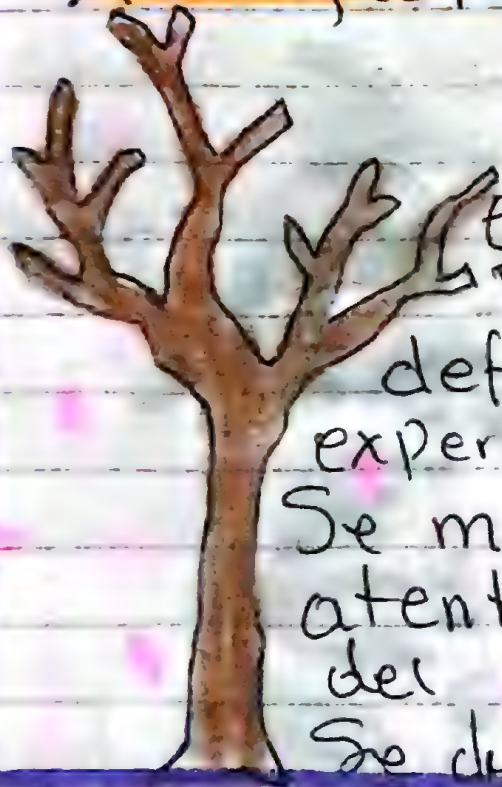 def
exper
Se m
atent
del
Se du